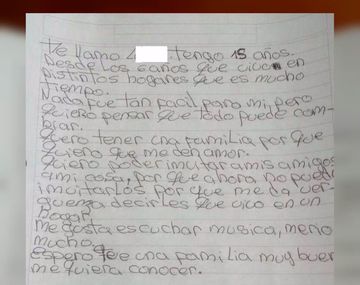 Te llamo tengo 15 años.
Desde los 6 años que vivo en
distintos hogares que es mucho
tiempo.
Nada fue tan facil para mi, pero
quiero pensar que todo puede cam-
biar.
Quero tener una familia por que
quiero que me den amor.
Quiero poder invitar a mis amigos
a mi casa, por que ahora no puedo
invitarlos por que me da ver-
guenza decirles que vivo en un
hogar.
Me gusta escuchar musica,
mucho
Espero que una familia muy buen
me quiera conocer.